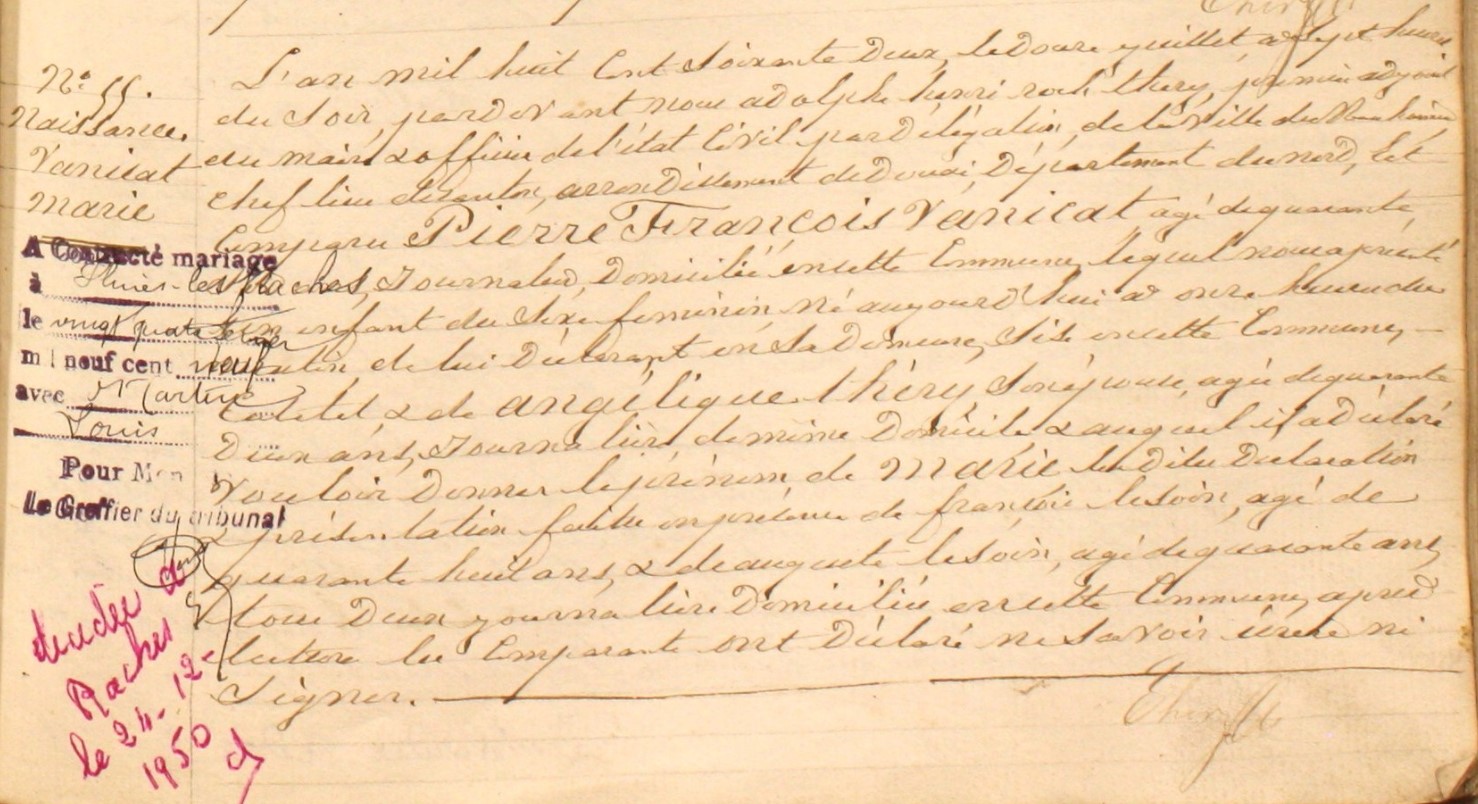 N° 55.
Naissance.
Vanicat
marie
A Contracté mariage
à Flines-les-Raches
le vingt quatre
mil neuf cent neuf
avec Martin
Louis
Pour Men
Le Greffier du tribunal
décédée à
Raches
le 24-12-
1950
L'an mil huit Cent Soixante Deux, le Douze juillet à Sept heures
du Soir, pardevant nous adolphe henri roch théry, premier adjoint
au maire & officier de l'état Civil par Délégation, de la Ville de Marchiennes
chef lieu de canton, arrondissement de Douai Département du nord, Est
Comparu Pierre François Vanicat agé de quarante
ans, Journalier, Domicilié en cette Commune, lequel nous a présenté
un enfant du Sexe feminin né aujourd'hui à onze heures du
matin de lui Déclarant en Sa Demeure, Sise en cette Commune,
& de angélique théry Son épouse, agée de quarante
Deux ans, Journalière de même Domicile & auquel il a Déclaré
Vouloir Donner le prénom de Marie les Dites Déclaration
& présentation faites en présence de françois lesoin, agé de
quarante huit ans, & de auguste lesoin, agé de quarante ans,
tous Deux journaliers Domiciliés en cette Commune, après
lecture les Comparants ont Déclaré ne Savoir écrire ni
Signer.